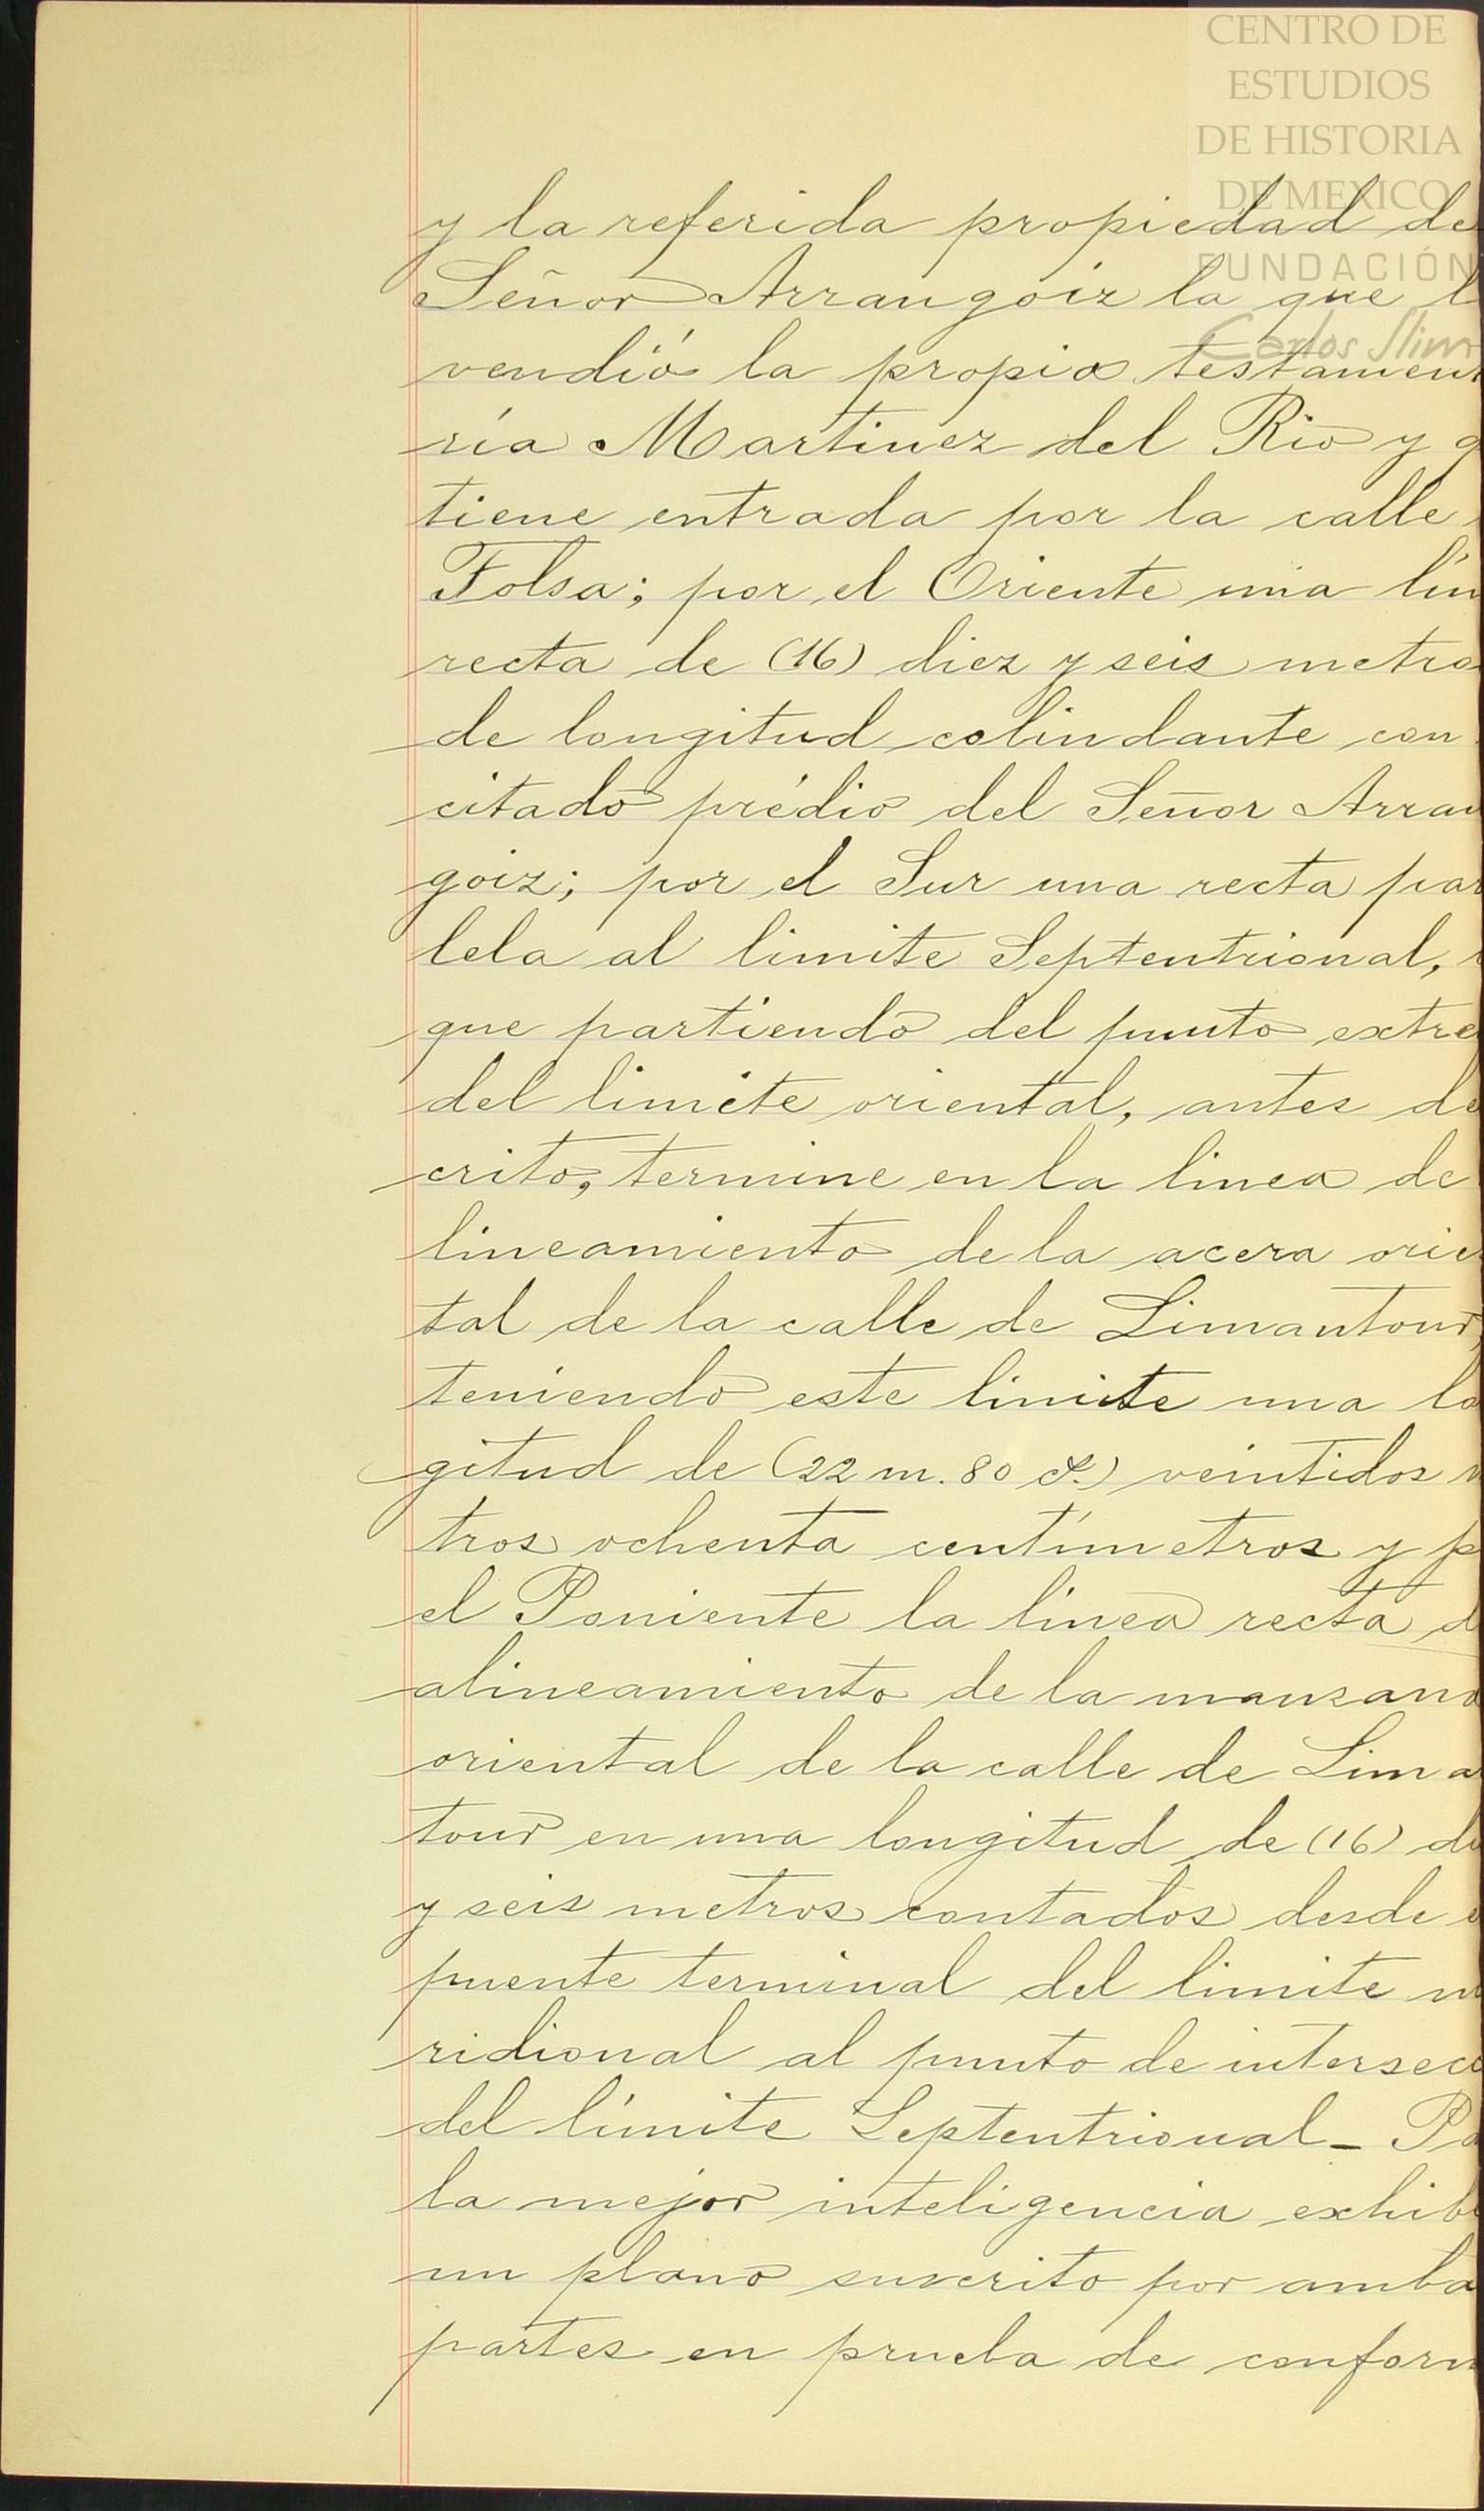 CENTRO DE
ESTUDIOS
DE HISTORIA
DE MEXICO
FUNDACIÓN
Carlos Slim
y la referida propiedad de
Señor Arrangoiz la que l
vendió la propia testamen
ría Martinez del Rio y q
tiene entrada por la calle
Tolsa; por el Oriente una lín
recta de (16) diez y seis metro
de longitud colindante con
citado prédio del Señor Arran
goiz; por el Sur una recta par
lela al limite Septentrional,
que partiendo del punto extre
del limite oriental, antes de
crito, termine en la linea de
lineamiento de la acera orie
tal de la calle de Limantour,
teniendo este limite una lo
gitud de (22 m. 80 c.) veintidos m
tros ochenta centímetros y p
el Poniente la línea recta d
alineamiento de la manzana
oriental de la calle de Lima
tour en una longitud de (16) di
y seis metros contados desde e
puente terminal del limite m
ridional al punto de intersec
del límite Septentrional_ Pa
la mejor inteligencia exhibe
un plano suscrito por amba
partes en prueba de conform